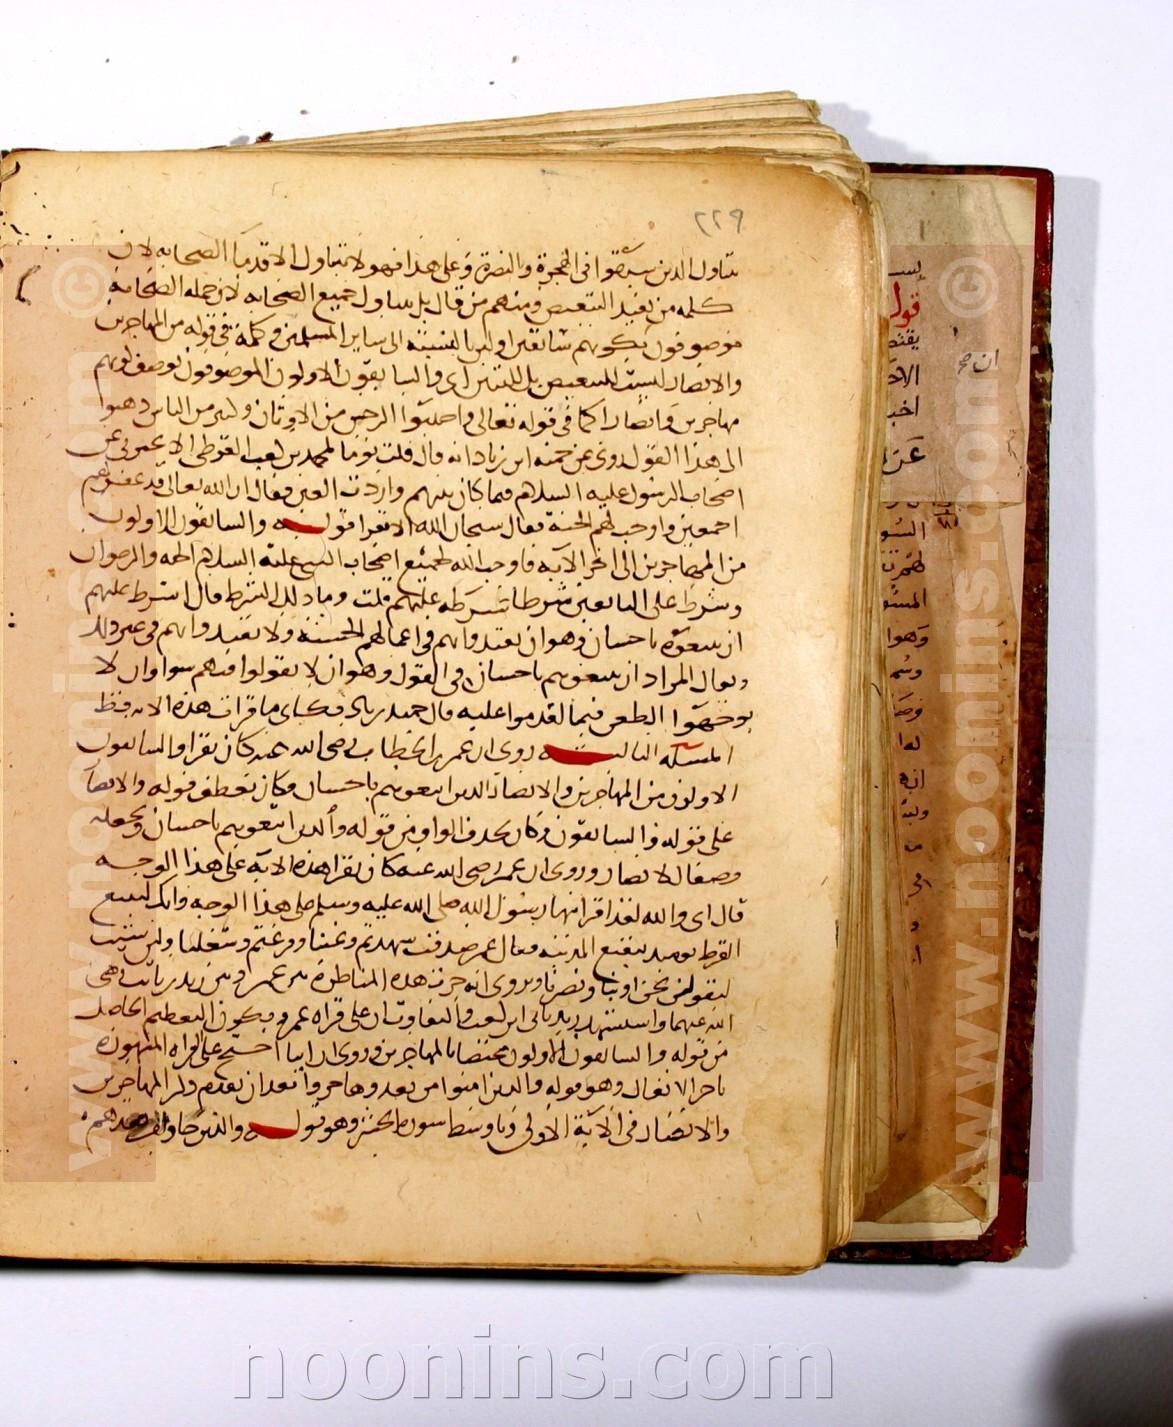 ٢٢٩
تتناول الذين سبقوا في الهجرة والنصرة وعلى هذا فهو لا يتناول الا قدماء الصحابه لان
كلمه من تفيد التبعيض ومنهم من قال بل يتناول جميع الصحابه لان جمله الصحابة
موصوفون بكونهم سابقين اولين بالنسبة الى ساير المسلمين وكلمة من في قوله من المهاجرين
والانصار ليست للتبعيض بل للتبيين اي والسابقون الاولون الموصوفون بوصف كونهم
مهاجرين وانصارا كما في قوله تعالى فاجتنبوا الرجس من الاوثان وكثير من الناس ذهبوا
الى هذا القول روي عن حميد ابن زياد انه قال قلت يوما لمحمد بن كعب القرظي الا تخبرني عن
اصحاب الرسول عليه السلام فيما كان بينهم واردت الفتن فقال ان الله تعالى قد غفر لهم
اجمعين واوجب لهم الجنة فقال سبحان الله الا تقرا قوله والسابقون الاولون
من المهاجرين الى اخر الآيه فاوجب الله لجميع اصحاب النبي عليه السلام الجنه والرضوان
وشرط على التابعين شرطا شرطه عليهم قلت وما ذلك الشرط قال اشترط عليهم
ان يتبعوهم باحسان وهو ان يقتدوا بهم في اعمالهم الحسنة ولا يقتدوا بهم في غير ذلك
ويقال المراد ان يتبعوهم باحسان في القول وهو ان لا يقولوا فيهم سوا وان لا
يوجهوا الطعن فيما اقدموا عليه قال حميد بن زياد فكاني ما قرات هذه الايه قط
المسئله الثالثه روي ان عمر بن الخطاب رضي الله عنه كان يقرا والسابقون
الاولون من المهاجرين والانصار الذين اتبعوهم باحسان وكان يعطف قوله والانصار
على قوله والسابقون وكان يحذف الواو من قوله والذين اتبعوهم باحسان ويجعله
وصفا للانصار وروي ان عمر رضي الله عنه كان يقرا هذه الآيه على هذا الوجه
قال ابي والله لقد اقرانيها رسول الله صلى الله عليه وسلم على هذا الوجه وانك لتبيع
القرظ يوميذ ببقيع المدينه فقال عمر صدقت شهدتم وغبنا وفرغتم وشغلنا ولئن شئت
لتقولن نحن اوينا ونصرنا وروي انه جرت هذه المناظرة بين عمر وبين زيد بن ثابت رضي
الله عنهما واستشهد زيد بابي ابن كعب والتفاوت ان على قراة عمر يكون التعظيم الحاصل
من قوله والسابقون الاولون مختصا بالمهاجرين وروي ان ابيا احتج على القراة المشهورة
باخر الانفال وهو قوله والذين امنوا من بعد وهاجروا بعد ان تقدم ذكر المهاجرين
والانصار في الآية الاولى وباوسط سورة الحشر وهو قوله والذين جاوا من بعدهم
قول
ان صح
www.noonins.com ©
www.noonins.com ©
noonins.com